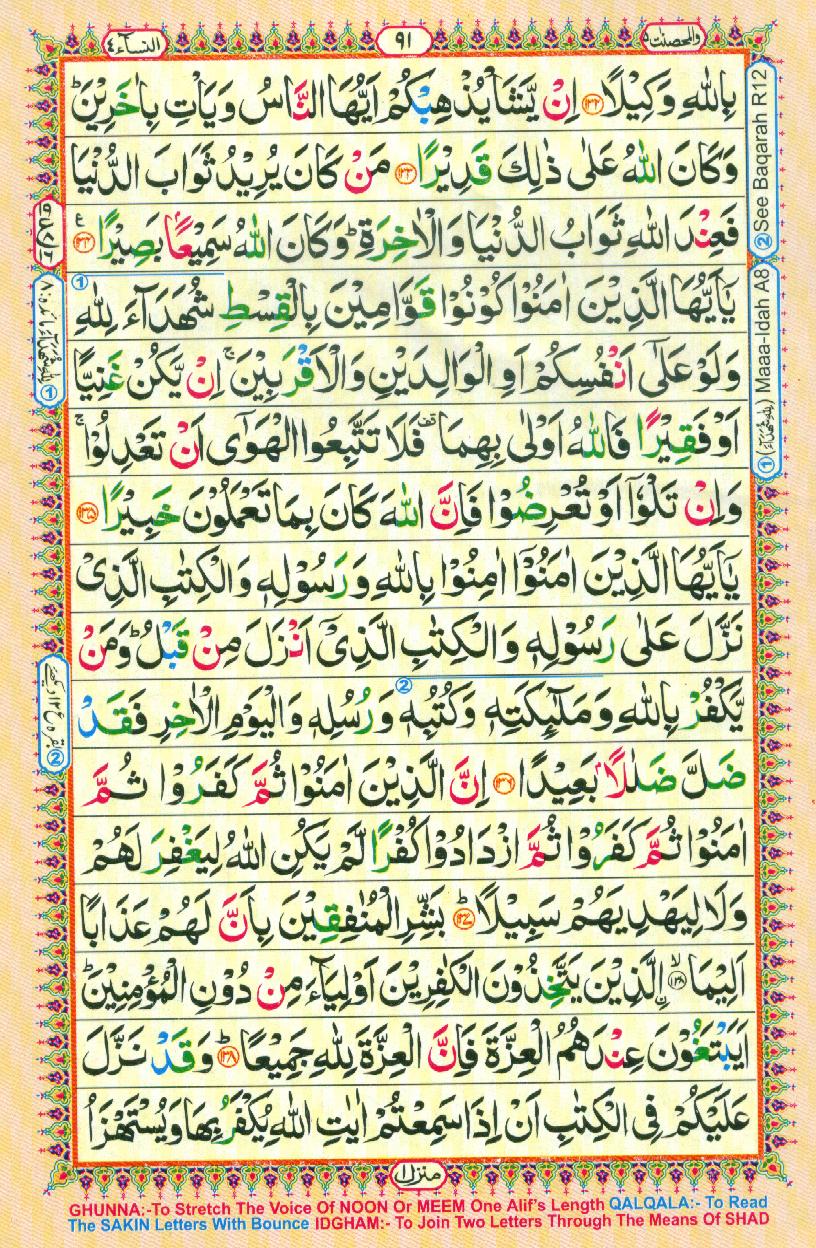 النسآء ٤
٩١
والمحصنت ٥
بِاللّٰهِ وَكِيْلًا ﴿۱۳۲﴾ اِنْ يَّشَاْ يُذْهِبْكُمْ اَيُّهَا النَّاسُ وَيَاْتِ بِاٰخَرِيْنَ ؕ
وَكَانَ اللّٰهُ عَلٰى ذٰلِكَ قَدِيْرًا ﴿۱۳۳﴾ مَنْ كَانَ يُرِيْدُ ثَوَابَ الدُّنْيَا
فَعِنْدَ اللّٰهِ ثَوَابُ الدُّنْيَا وَالْاٰخِرَةِ ؕ وَكَانَ اللّٰهُ سَمِيْعًۢا بَصِيْرًا ﴿۱۳۴﴾
يٰۤاَيُّهَا الَّذِيْنَ اٰمَنُوْا كُوْنُوْا قَوّٰمِيْنَ بِالْقِسْطِ شُهَدَآءَ لِلّٰهِ
وَلَوْ عَلٰۤى اَنْفُسِكُمْ اَوِ الْوَالِدَيْنِ وَالْاَقْرَبِيْنَ ۚ اِنْ يَّكُنْ غَنِيًّا
اَوْ فَقِيْرًا فَاللّٰهُ اَوْلٰى بِهِمَا ۫ فَلَا تَتَّبِعُوا الْهَوٰۤى اَنْ تَعْدِلُوْا ۚ
وَاِنْ تَلْوٗۤا اَوْ تُعْرِضُوْا فَاِنَّ اللّٰهَ كَانَ بِمَا تَعْمَلُوْنَ خَبِيْرًا ﴿۱۳۵﴾
يٰۤاَيُّهَا الَّذِيْنَ اٰمَنُوْۤا اٰمِنُوْا بِاللّٰهِ وَرَسُوْلِهٖ وَالْكِتٰبِ الَّذِىْ
نَزَّلَ عَلٰى رَسُوْلِهٖ وَالْكِتٰبِ الَّذِىْۤ اَنْزَلَ مِنْ قَبْلُ ؕ وَمَنْ
يَّكْفُرْ بِاللّٰهِ وَمَلٰٓئِكَتِهٖ وَكُتُبِهٖ وَرُسُلِهٖ وَالْيَوْمِ الْاٰخِرِ فَقَدْ
ضَلَّ ضَلٰلًۢا بَعِيْدًا ﴿۱۳۶﴾ اِنَّ الَّذِيْنَ اٰمَنُوْا ثُمَّ كَفَرُوْا ثُمَّ
اٰمَنُوْا ثُمَّ كَفَرُوْا ثُمَّ ازْدَادُوْا كُفْرًا لَّمْ يَكُنِ اللّٰهُ لِيَغْفِرَ لَهُمْ
وَلَا لِيَهْدِيَهُمْ سَبِيْلًا ؕ﴿۱۳۷﴾ بَشِّرِ الْمُنٰفِقِيْنَ بِاَنَّ لَهُمْ عَذَابًا
اَلِيْمَا ۙ﴿۱۳۸﴾ ۨ الَّذِيْنَ يَتَّخِذُوْنَ الْكٰفِرِيْنَ اَوْلِيَآءَ مِنْ دُوْنِ الْمُؤْمِنِيْنَ ؕ
اَيَبْتَغُوْنَ عِنْدَهُمُ الْعِزَّةَ فَاِنَّ الْعِزَّةَ لِلّٰهِ جَمِيْعًا ؕ﴿۱۳۸﴾ وَقَدْ نَزَّلَ
عَلَيْكُمْ فِى الْكِتٰبِ اَنْ اِذَا سَمِعْتُمْ اٰيٰتِ اللّٰهِ يُكْفَرُ بِهَا وَيُسْتَهْزَاُ
② See Baqarah R12
① (لِلّٰهِ شُهَدَآءَ) Maaa-Idah A8
①
②
منزل ١
GHUNNA:-To Stretch The Voice Of NOON Or MEEM One Alif's Length QALQALA:- To Read
The SAKIN Letters With Bounce IDGHAM:- To Join Two Letters Through The Means Of SHAD